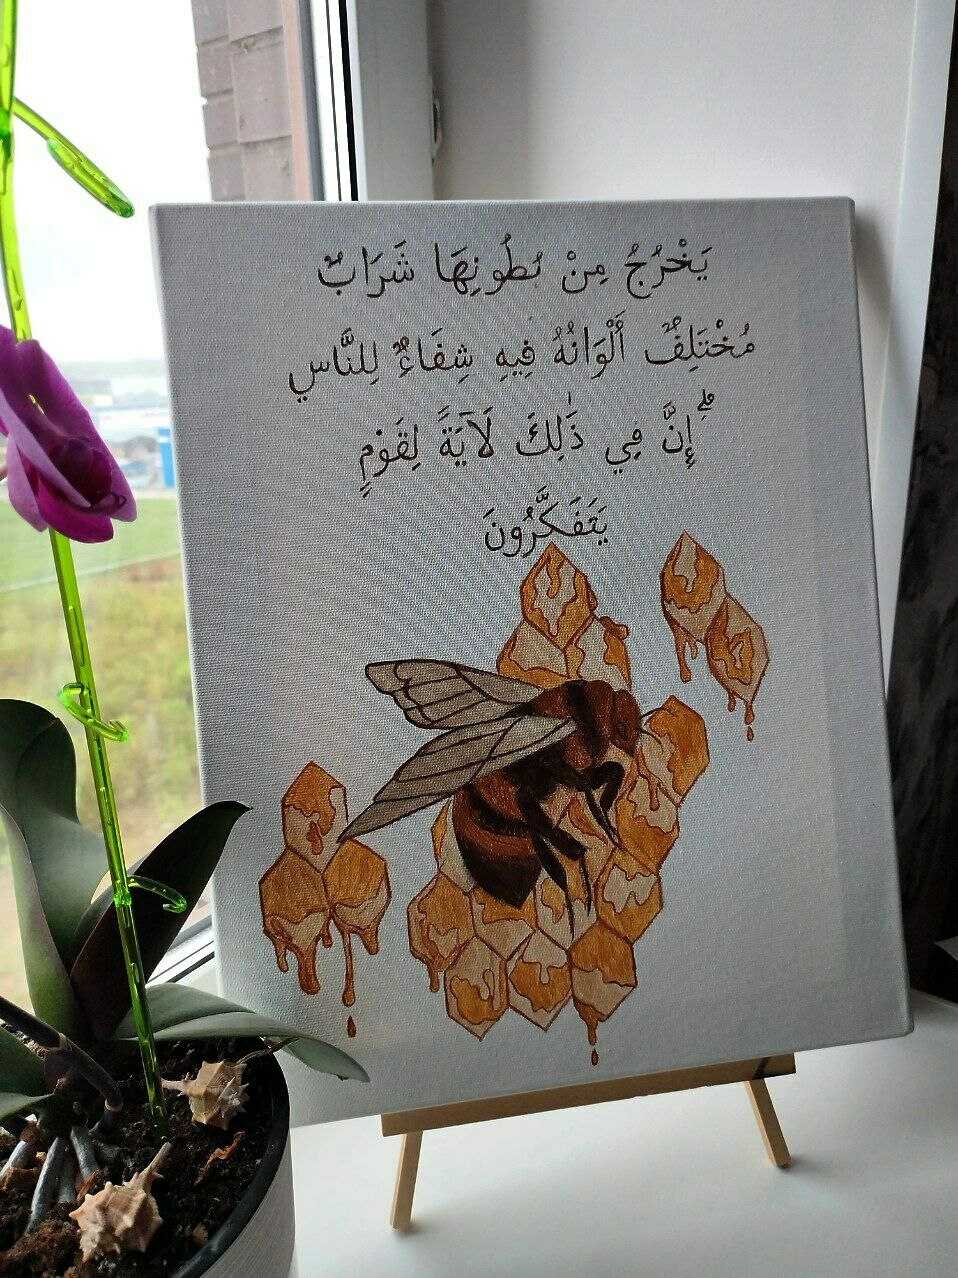 يَخْرُجُ مِنْ بُطُونِهَا شَرَابٌ
مُخْتَلِفٌ أَلْوَانُهُ فِيهِ شِفَاءٌ لِلنَّاسِ
ۗ إِنَّ فِي ذَٰلِكَ لَآيَةً لِقَوْمٍ
يَتَفَكَّرُونَ